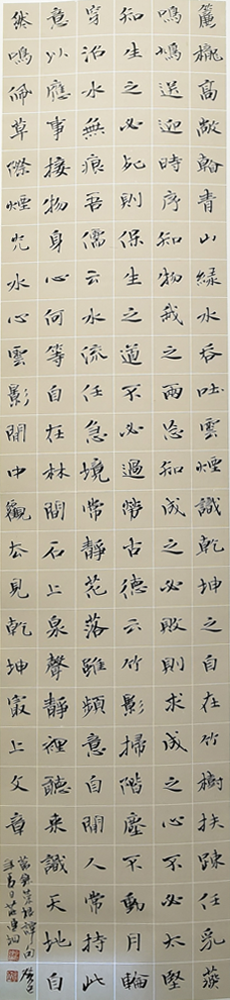 簾櫳高敞看青山綠水吞吐雲煙識乾坤之自在竹樹扶疎任乳燕
鳴鳩送迎時序知物我之兩忘知成之必敗則求成之心不必太堅
知生之必死則保生之道不必過勞古德云竹影掃階塵不動月輪
穿沼水無痕吾儒云水流任急境常靜花落雖頻意自閒人常持此
意以應事接物身心何等自在林間石上泉聲靜裡聽來識天地自
然鳴佩草際煙光水心雲影閒中觀去見乾坤最上文章
菜根譚句